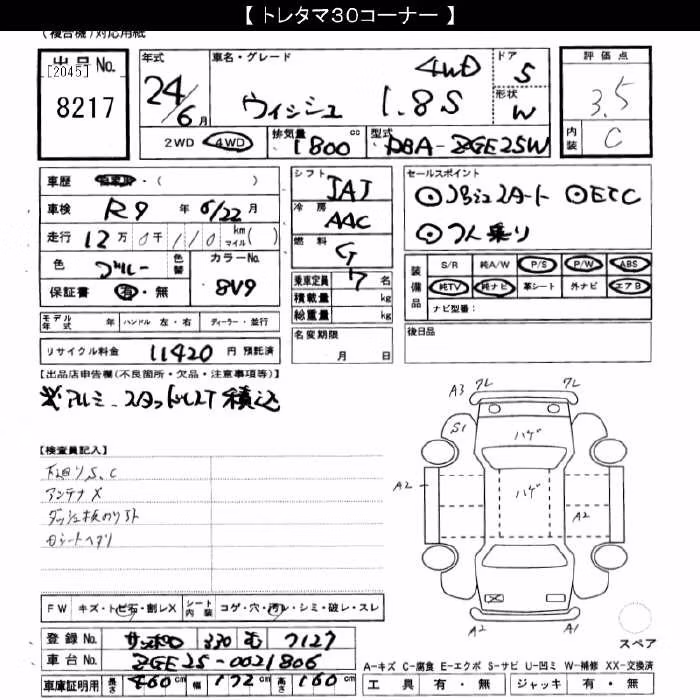 【 トレタマ30コーナー 】
(複合機)対応用紙
出品No. [2045] 8217
年式 24/6月
車名・グレード 4WD ウィッシュ 1.8S
ドア 5 形状 W
2WD 4WD 排気量 1800 cc 型式 DBA-ZGE25W
評価点 3.5
内装 C
車歴 自家用・( )
車検 R9年 6/22月
走行 12万0千110 km マイル( )
色 ブルー 色替 カラーNo. 8V9
保証書 有・無
シフト IAT
冷房 AAC
燃料 G
乗車定員 7名
積載量 kg
総重量 kg
名変期限 月 日
セールスポイント
プッシュスタート ETC
7人乗り
装備品 S/R 純A/W P/S P/W ABS
純TV 純ナビ 革シート 外ナビ エアB
ナビ型番:
後日品
モデル年式 年 ハンドル 左・右 ディーラー・並行
リサイクル料金 11420 円 預託済
【出品店申告欄(不良箇所・欠品・注意事項等)】
※アルミ-スタッドレスT 積込
【検査員記入】
下回りS、C
アンテナX
ダッシュ板のり跡
内シートヘタリ
FW キズ・トビ石・割レX シート内装 コゲ・穴・汚レ・シミ・破レ・スレ
登録No. サッポロ 330 も 7127
車台No. ZGE25-0021806
車庫証明用 長さ 460cm 幅 172cm 高さ 160cm
A3 ワレ ワレ
S1 ハゲ
A2 ハゲ A2
A2 A1
スペア
A-キズ C-腐食 E-エクボ S-サビ U-凹ミ W-補修 XX-交換済
工具 有・無 ジャッキ 有・無